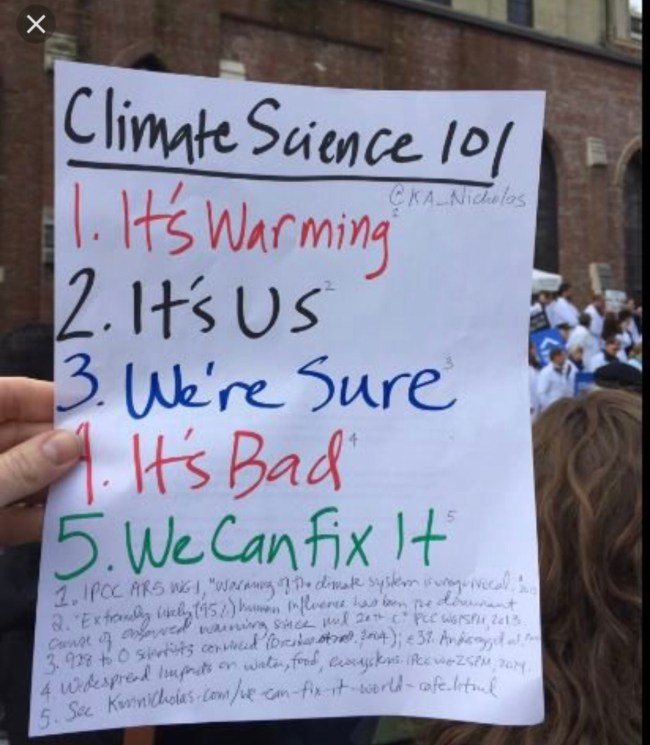 Climate Science 101
@KA_Nicholas
1. It's Warming¹
2. It's Us²
3. We're Sure³
4. It's Bad⁴
5. We Can Fix It⁵
1. IPCC AR5 WG1, "Warming of the climate system is unequivocal."
2. "Extremely likely (95%) human influence has been the dominant
cause of observed warming since mid 20th C" IPCC 2013.
3. 928 to 0 scientists convinced 2004); et al.
4. Widespread impacts on water, food, ecosystems. IPCC WG2 SPM, 2014.
5. See Kimnicholas.com/we-can-fix-it-world-cafe.html